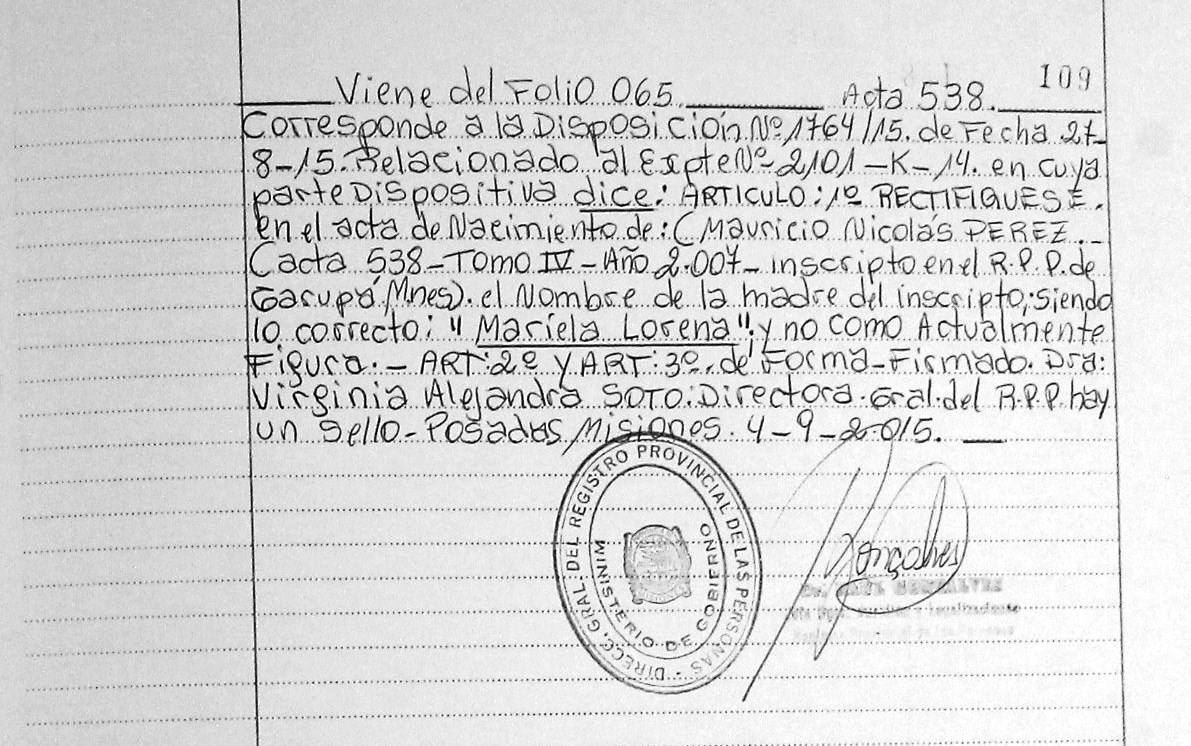 109
Viene del Folio 065. Acta 538.
Corresponde a la Disposición Nº 1764/15. de Fecha 27-
8-15. Relacionado al Expte Nº 2101-K-14. en cuya
parte Dispositiva dice: ARTICULO: 1º RECTIFIQUESE.
en el acta de Nacimiento de: (Mauricio Nicolás PEREZ.-
(acta 538-Tomo IV-Año 2.007- inscripto en el R.P.P. de
Garupá (Mnes). el Nombre de la madre del inscripto, siendo
lo correcto: "Mariela Lorena". y no como Actualmente
Figura.- ART: 2º y ART: 3º. de Forma-Firmado. Dra:
Virginia Alejandra SOTO. Directora. Gral. del R.P.P. hay
un sello-Posadas Misiones. 4-9-2015.
DIRECC. GRAL. DEL REGISTRO PROVINCIAL DE LAS PERSONAS -
MINISTERIO DE GOBIERNO
GONSALVES